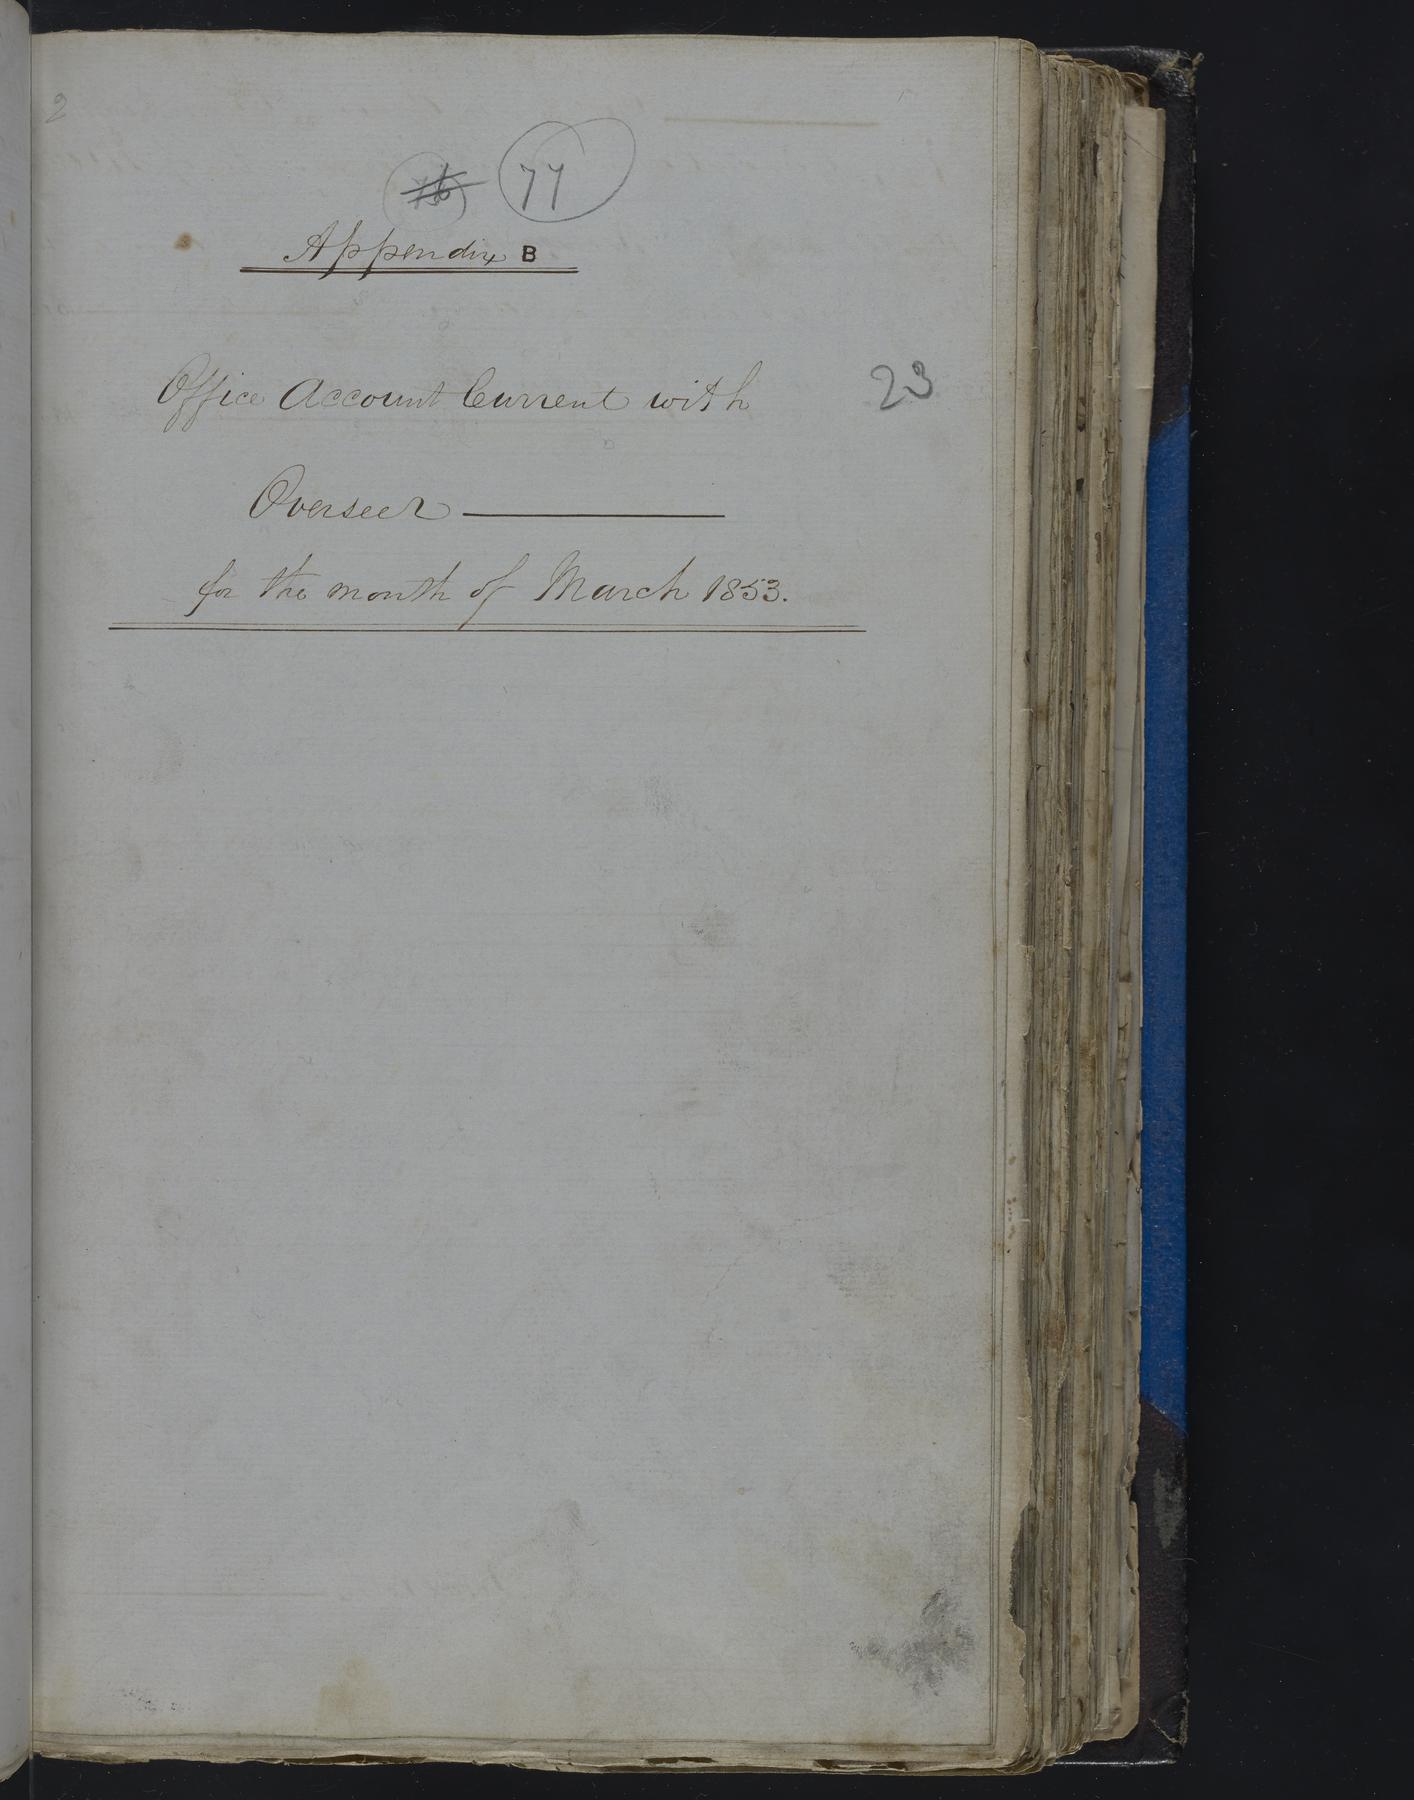 2
76 77
Appendix B
Office Account Current with
23
Overseer
for the month of March 1853.